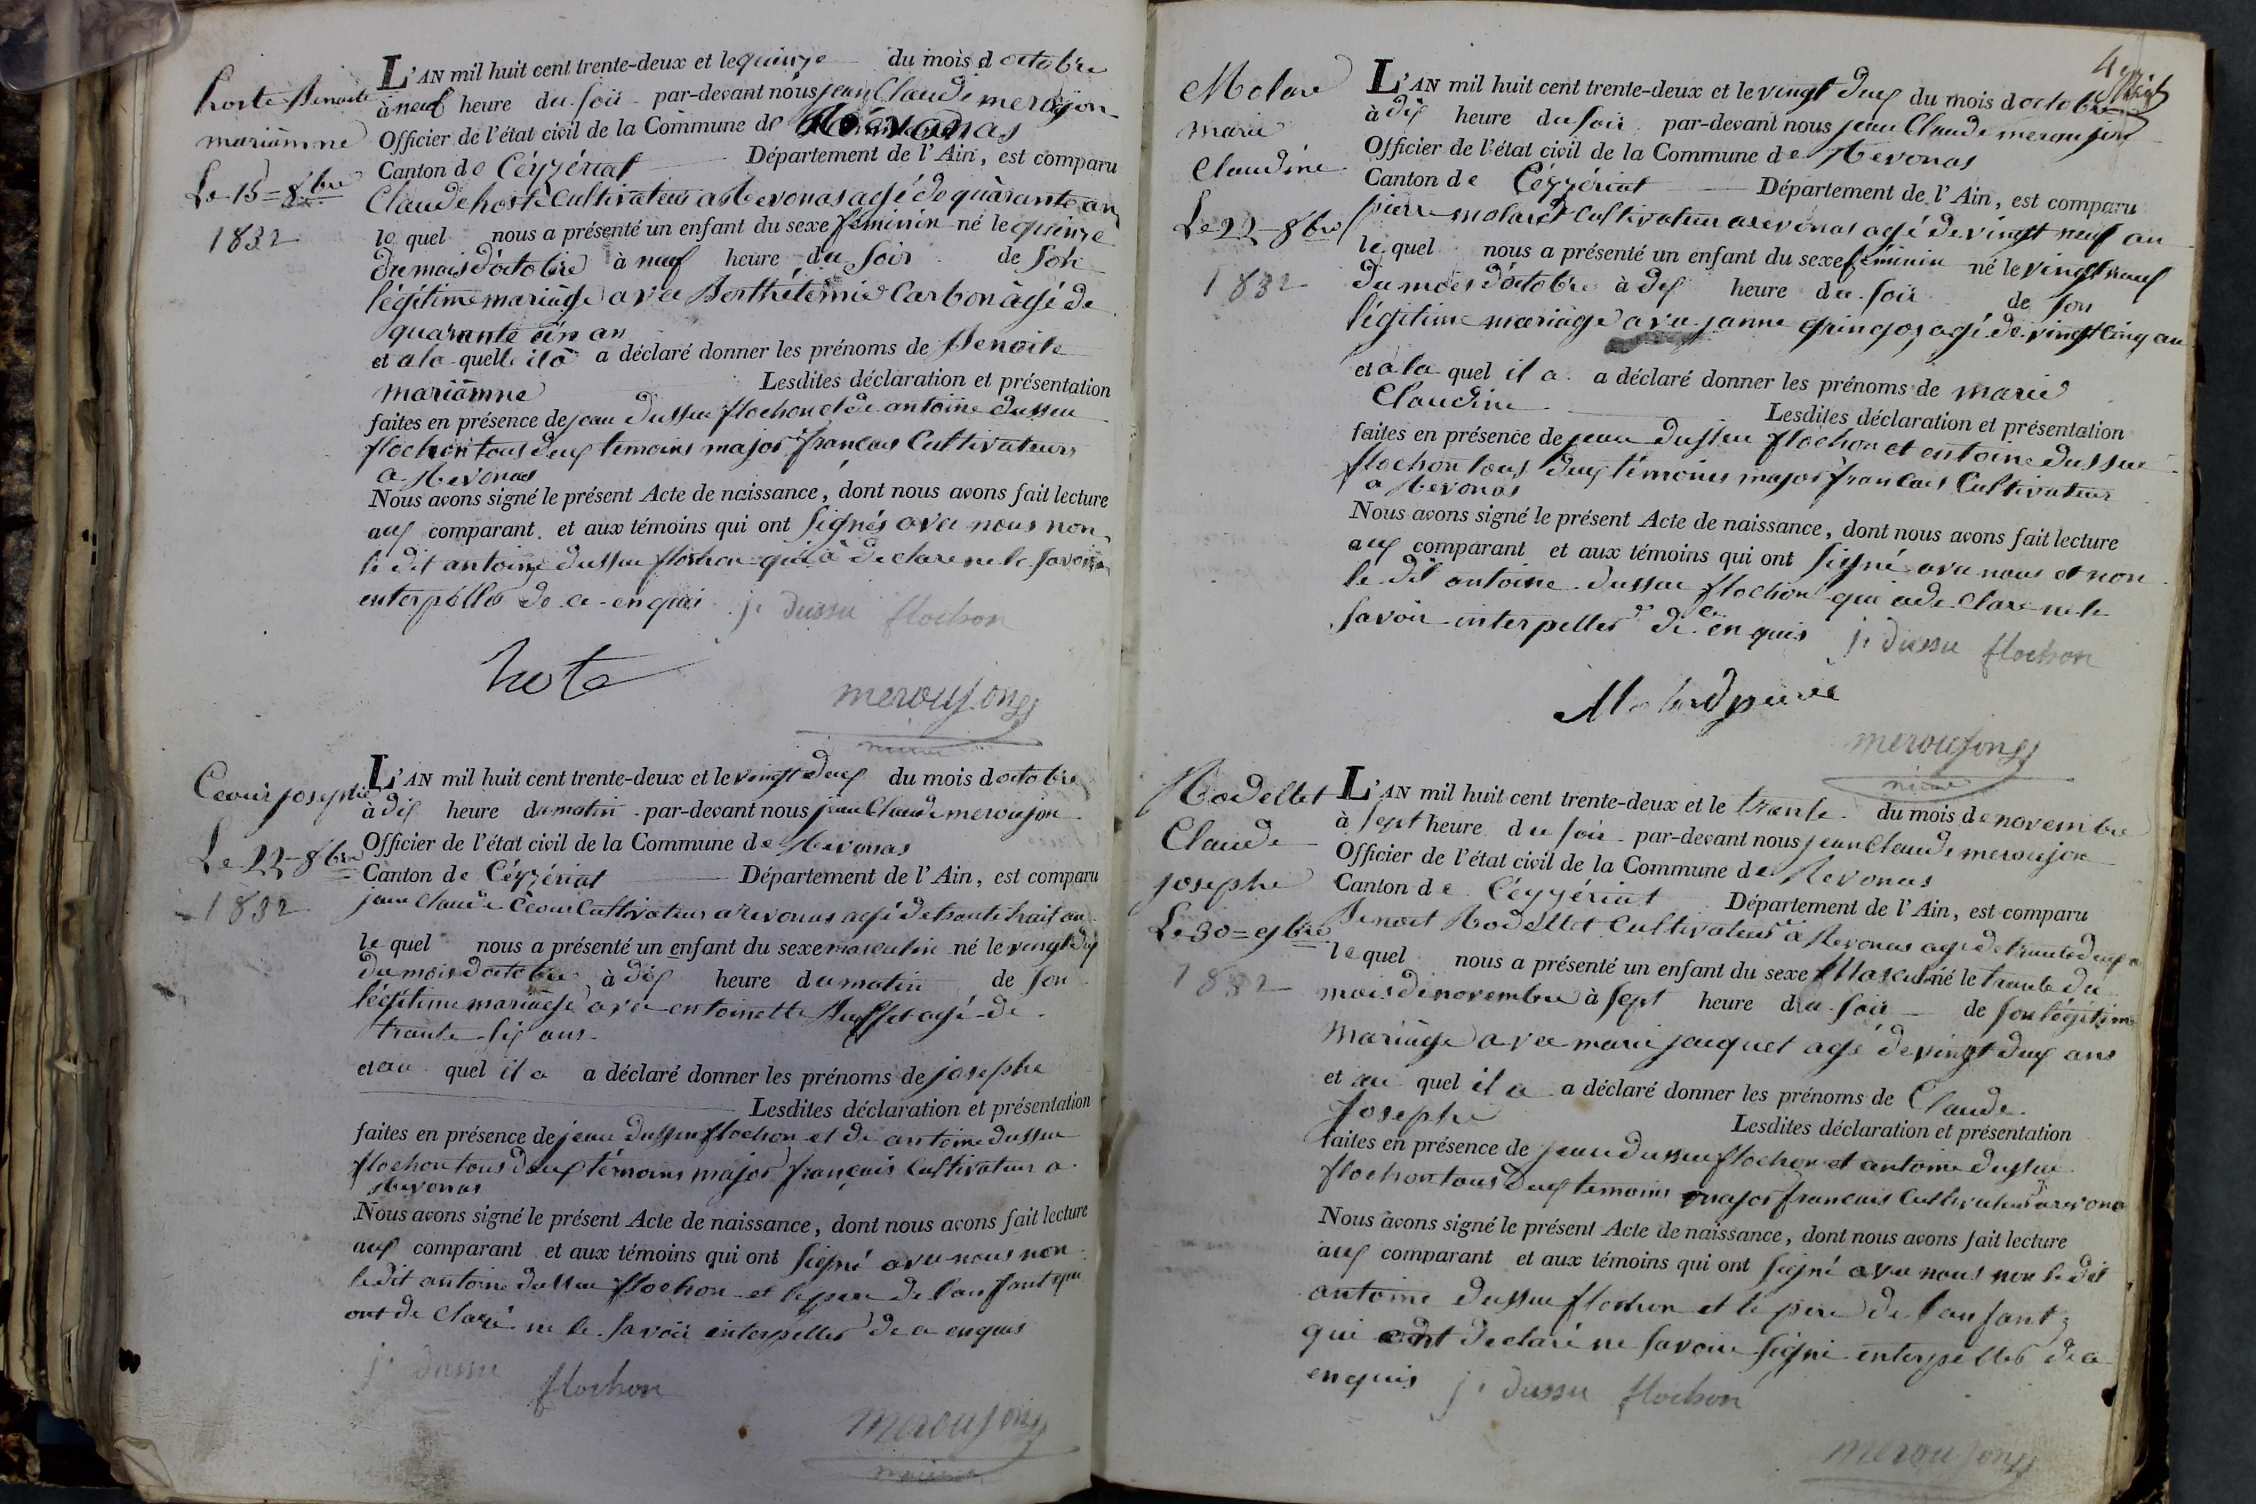 hoste Benoite
mariamne
Le 15 = 8bre
1832
L'AN mil huit cent trente-deux et le quinze du mois d octobre
à neuf heure du soir par-devant nous jean Claude meroujon
Officier de l'état civil de la Commune de Revonas
Canton de Céyzériat Département de l'Ain, est comparu
Claude hoste Cultivateur a Revonas agé de quarante an
le quel nous a présenté un enfant du sexe féminin né le quinze
du mois d'octobre à neuf heure du soir de son
légitime mariage avec Berthélémie Carbon agé de
quarante un an
et a la quelle il a a déclaré donner les prénoms de Benoite
mariamne Lesdites déclaration et présentation
faites en présence de jean dussue flochon et de antoine dussue
flochon tous deux temoins major français Cultivateurs
a Revonas
Nous avons signé le présent Acte de naissance, dont nous avons fait lecture
aux comparant et aux témoins qui ont signés avec nous non
le dit antoine dussue flochon qui a declare ne le savoir
enterpéllés de ce enquis j. dussu flochon
hote
meroujon
maire
Ceour josephe
Le 22 - 8bre
1832
L'AN mil huit cent trente-deux et le vingt deux du mois d octobre
à dix heure du matin par-devant nous jean Claude meroujon
Officier de l'état civil de la Commune de Revonas
Canton de Céyzériat Département de l'Ain, est comparu
jean Claude Ceour Cultivateur a revonas agé de trante huit an
le quel nous a présenté un enfant du sexe masculin né le vingt deux
du mois d'octobre à dix heure du matin de son
légitime mariage avec antoinette agé de
trante six ans
et au quel il a a déclaré donner les prénoms de josephe
Lesdites déclaration et présentation
faites en présence de jean dussue flochon et de antoine dussue
flochon tous deux témoins major français Cultivateur a
Revonas
Nous avons signé le présent Acte de naissance, dont nous avons fait lecture
aux comparant et aux témoins qui ont signé avec nous non
le dit antoine dussue flochon et le pere de l'anfant qui
ont de claré ne le savoir enterpelles de ce enquis
j. dussu flochon
meroujon
maire
Molare
marie
Claudine
Le 22 - 8bre
1832
L'AN mil huit cent trente-deux et le vingt deux du mois d octobre
à dix heure du soir par-devant nous jean Claude meroujon
Officier de l'état civil de la Commune de Revonas
Canton de Céyzériat Département de l'Ain, est comparu
pierre molard Cultivateur a revonas agé de vingt neuf an
le quel nous a présenté un enfant du sexe féminin né le vingt
du mois d'octobre à dix heure du soir de son
légitime mariage avec janne gringoz agé de vingt cinq an
et a la quel il a a déclaré donner les prénoms de marie
Claudine Lesdites déclaration et présentation
faites en présence de jean dussue flochon et antoine dussue
flochon tous deux témoins major français Cultivateur
a Revonas
Nous avons signé le présent Acte de naissance, dont nous avons fait lecture
aux comparant et aux témoins qui ont signé avec nous et non
le dit antoine dussue flochon qui a de Claré ne le
savoir interpelles de ce enquis j. dussu flochon
Molard pierre
meroujon
maire
Rodellet
Claude
josephe
Le 30 = 9bre
1832
L'AN mil huit cent trente-deux et le trante du mois de novembre
à sept heure du soir par-devant nous jean Claude meroujon
Officier de l'état civil de la Commune de Revonas
Canton de Céyzériat Département de l'Ain, est comparu
Benoit Rodellet Cultivateur a Revonas agé de trante deux a
le quel nous a présenté un enfant du sexe Masculin né le trante du
mois de novembre à sept heure du soir de son légitime
mariage avec marie jaquet agé de vingt deux ans
et au quel il a a déclaré donner les prénoms de Claude
Josephe Lesdites déclaration et présentation
faites en présence de jean dussue flochon et antoine dussue
flochon tous deux temoins major français Cultivateurs a revona
Nous avons signé le présent Acte de naissance, dont nous avons fait lecture
aux comparant et aux témoins qui ont signé avec nous non le dit
antoine dussue flochon et le pere de l'anfant
qui ont declaré ne savoir signé enterpelles de ce
enquis j. dussu flochon
meroujon